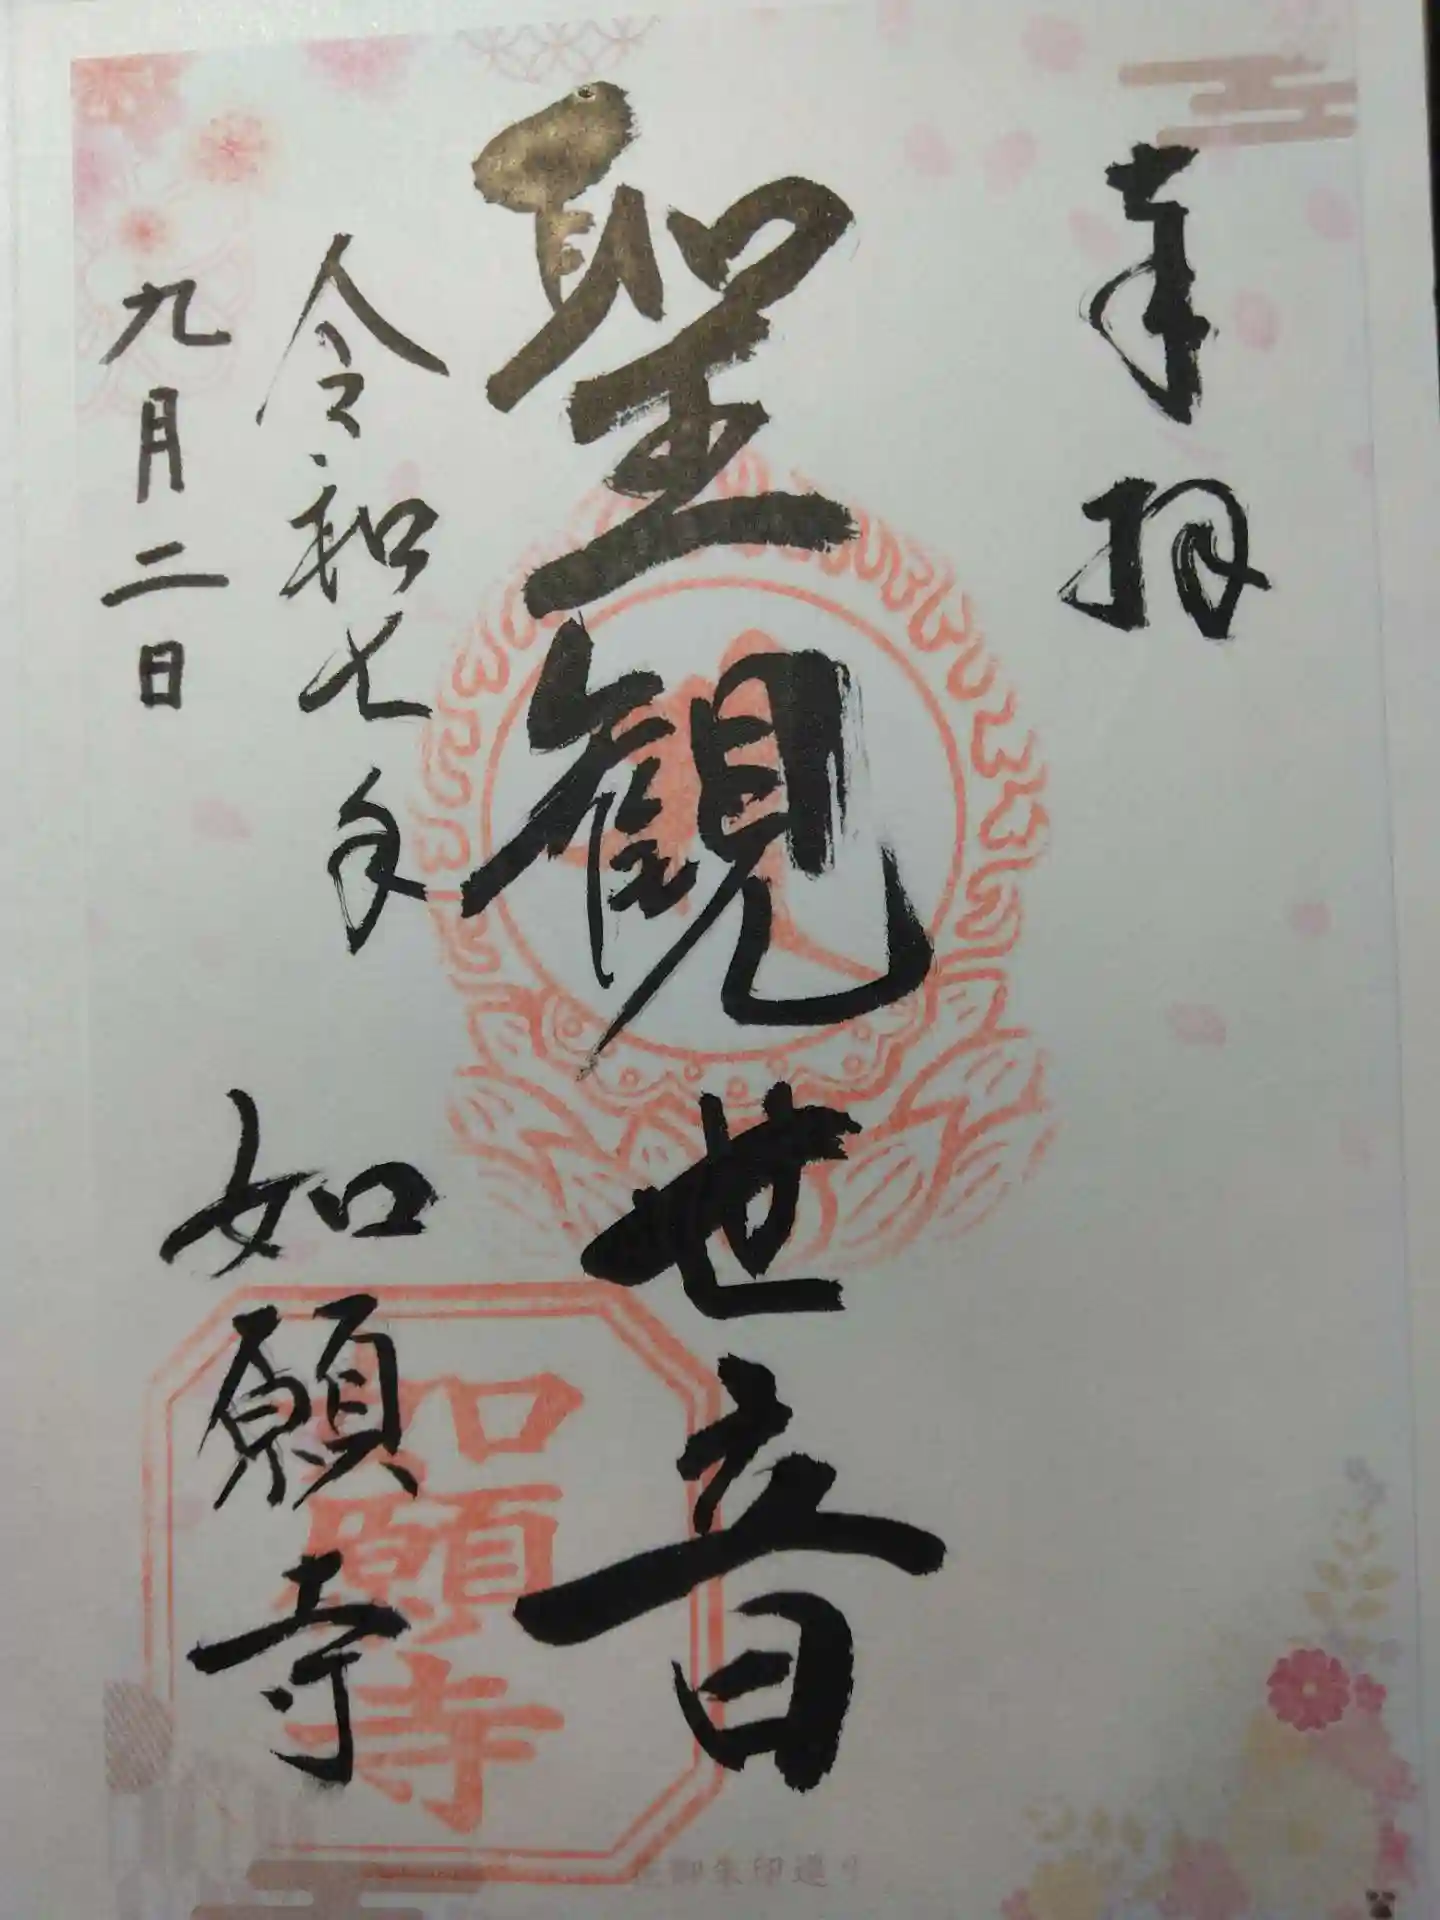 奉拝
聖観世音
令和七年
九月二日
如願寺
如願寺
御朱印巡り